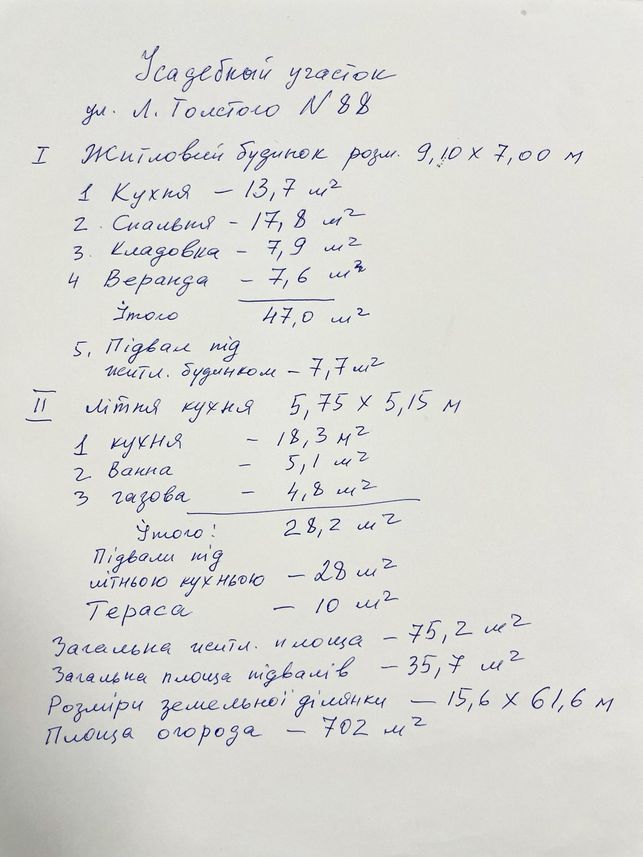 Усадебный участок
ул. Л. Толстого N 88
I Житловий будинок розм. 9,10 х 7,00 м
1 Кухня – 13,7 м²
2. Спальня – 17,8 м²
3. Кладовка – 7,9 м²
4 Веранда – 7,6 м²
Итого 47,0 м²
5. Підвал під
житл. будинком – 7,7 м²
II літня кухня 5,75 х 5,15 м
1 кухня – 18,3 м²
2 Ванна – 5,1 м²
3 газова – 4,8 м²
Итого: 28,2 м²
Підвали під
літньою кухньою – 28 м²
Тераса – 10 м²
Загальна житл. площа – 75,2 м²
Загальна площа підвалів – 35,7 м²
Розміри земельної ділянки – 15,6 х 61,6 м
Площа огорода – 702 м²